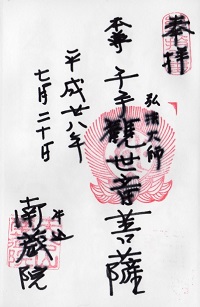 奉拝
弘法大師
本尊 千手觀世音菩薩
平成廿八年
七月二十日
南蔵院